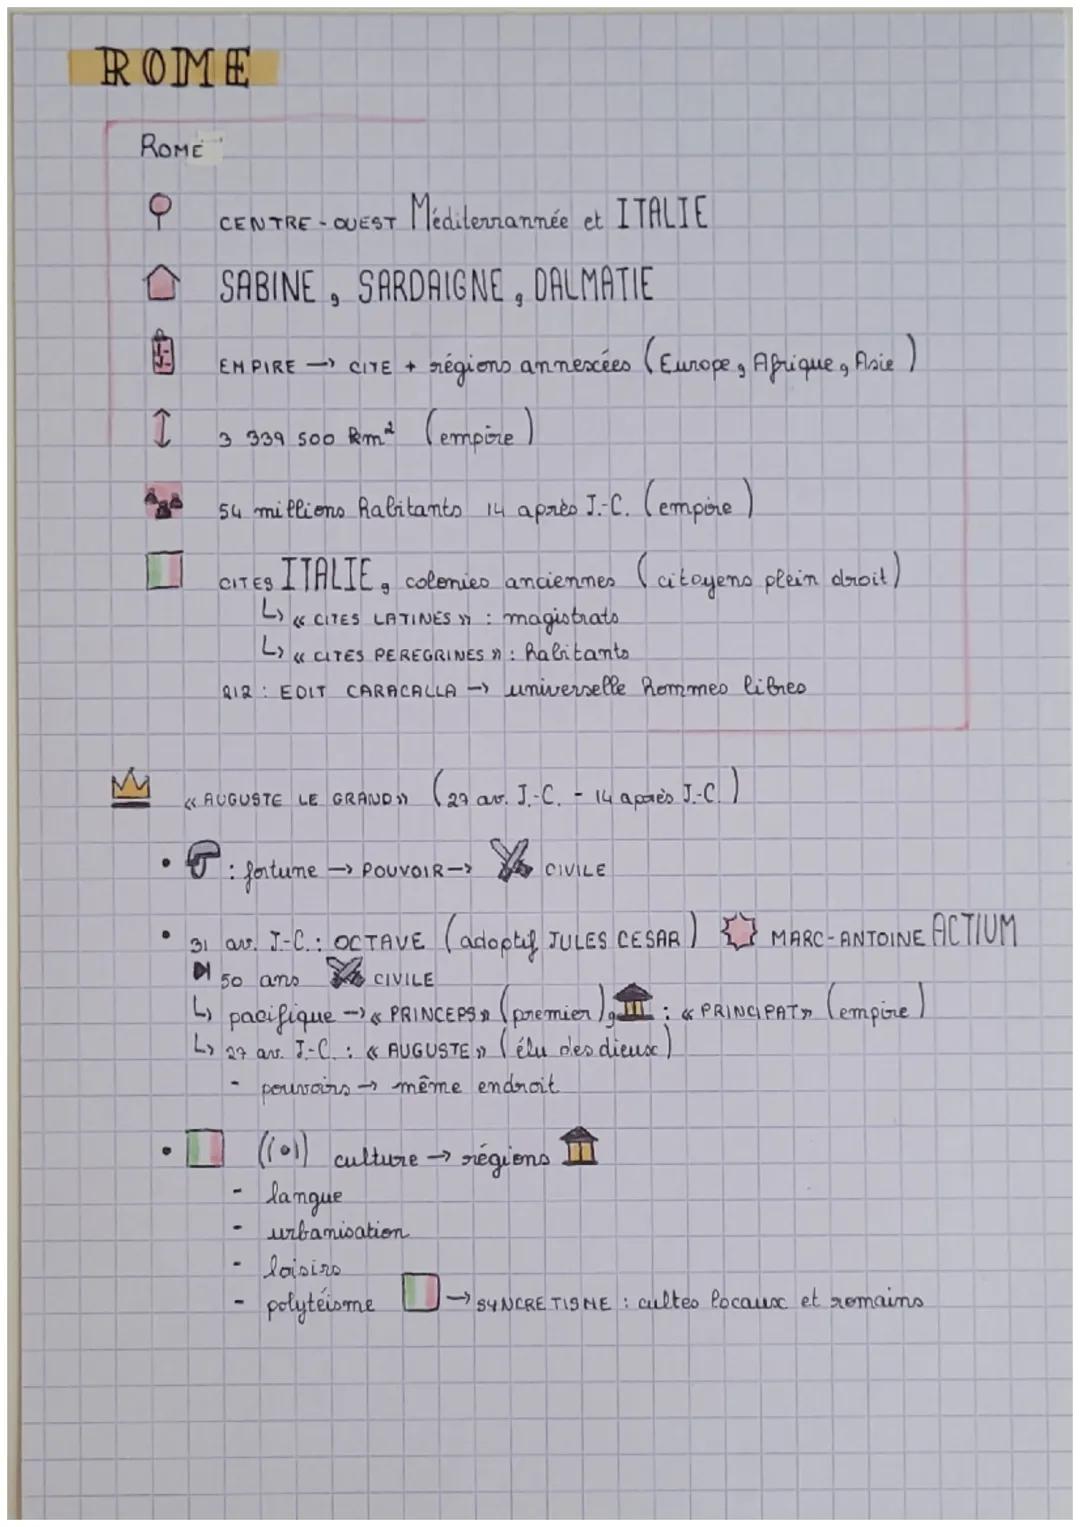 ROME
ROME
CENTRE-OUEST Méditerrannée et ITALIE
SABINE, SARDAIGNE, DALMATIE
EMPIRE → CITE + régions annexcées (Europe, Afrique, Asie)
3 339 500 km² (empire)
54 millions habitants 14 après J.-C. (empire)
CITES ITALIE, colonies anciennes (citoyens plein droit)
↳ « CITES LATINES » : magistrats
↳ « CITES PEREGRINES » : habitants
212 : EDIT CARACALLA → universelle hommes libres
« AUGUSTE LE GRAND » (27 av. J.-C. - 14 après J.-C.)
• : fortune → POUVOIR → CIVILE
• 31 av. J.-C. : OCTAVE (adoptif JULES CESAR) MARC-ANTOINE ACTIUM
50 ans CIVILE
↳ pacifique → « PRINCEPS » (premier), : « PRINCIPAT » (empire)
↳ 27 av. J.-C. : « AUGUSTE » (élu des dieux)
- pouvoirs → même endroit
• culture → régions
- langue
- urbanisation
- loisirs
- polytéisme → SYNCRETISME : cultes locaux et romains